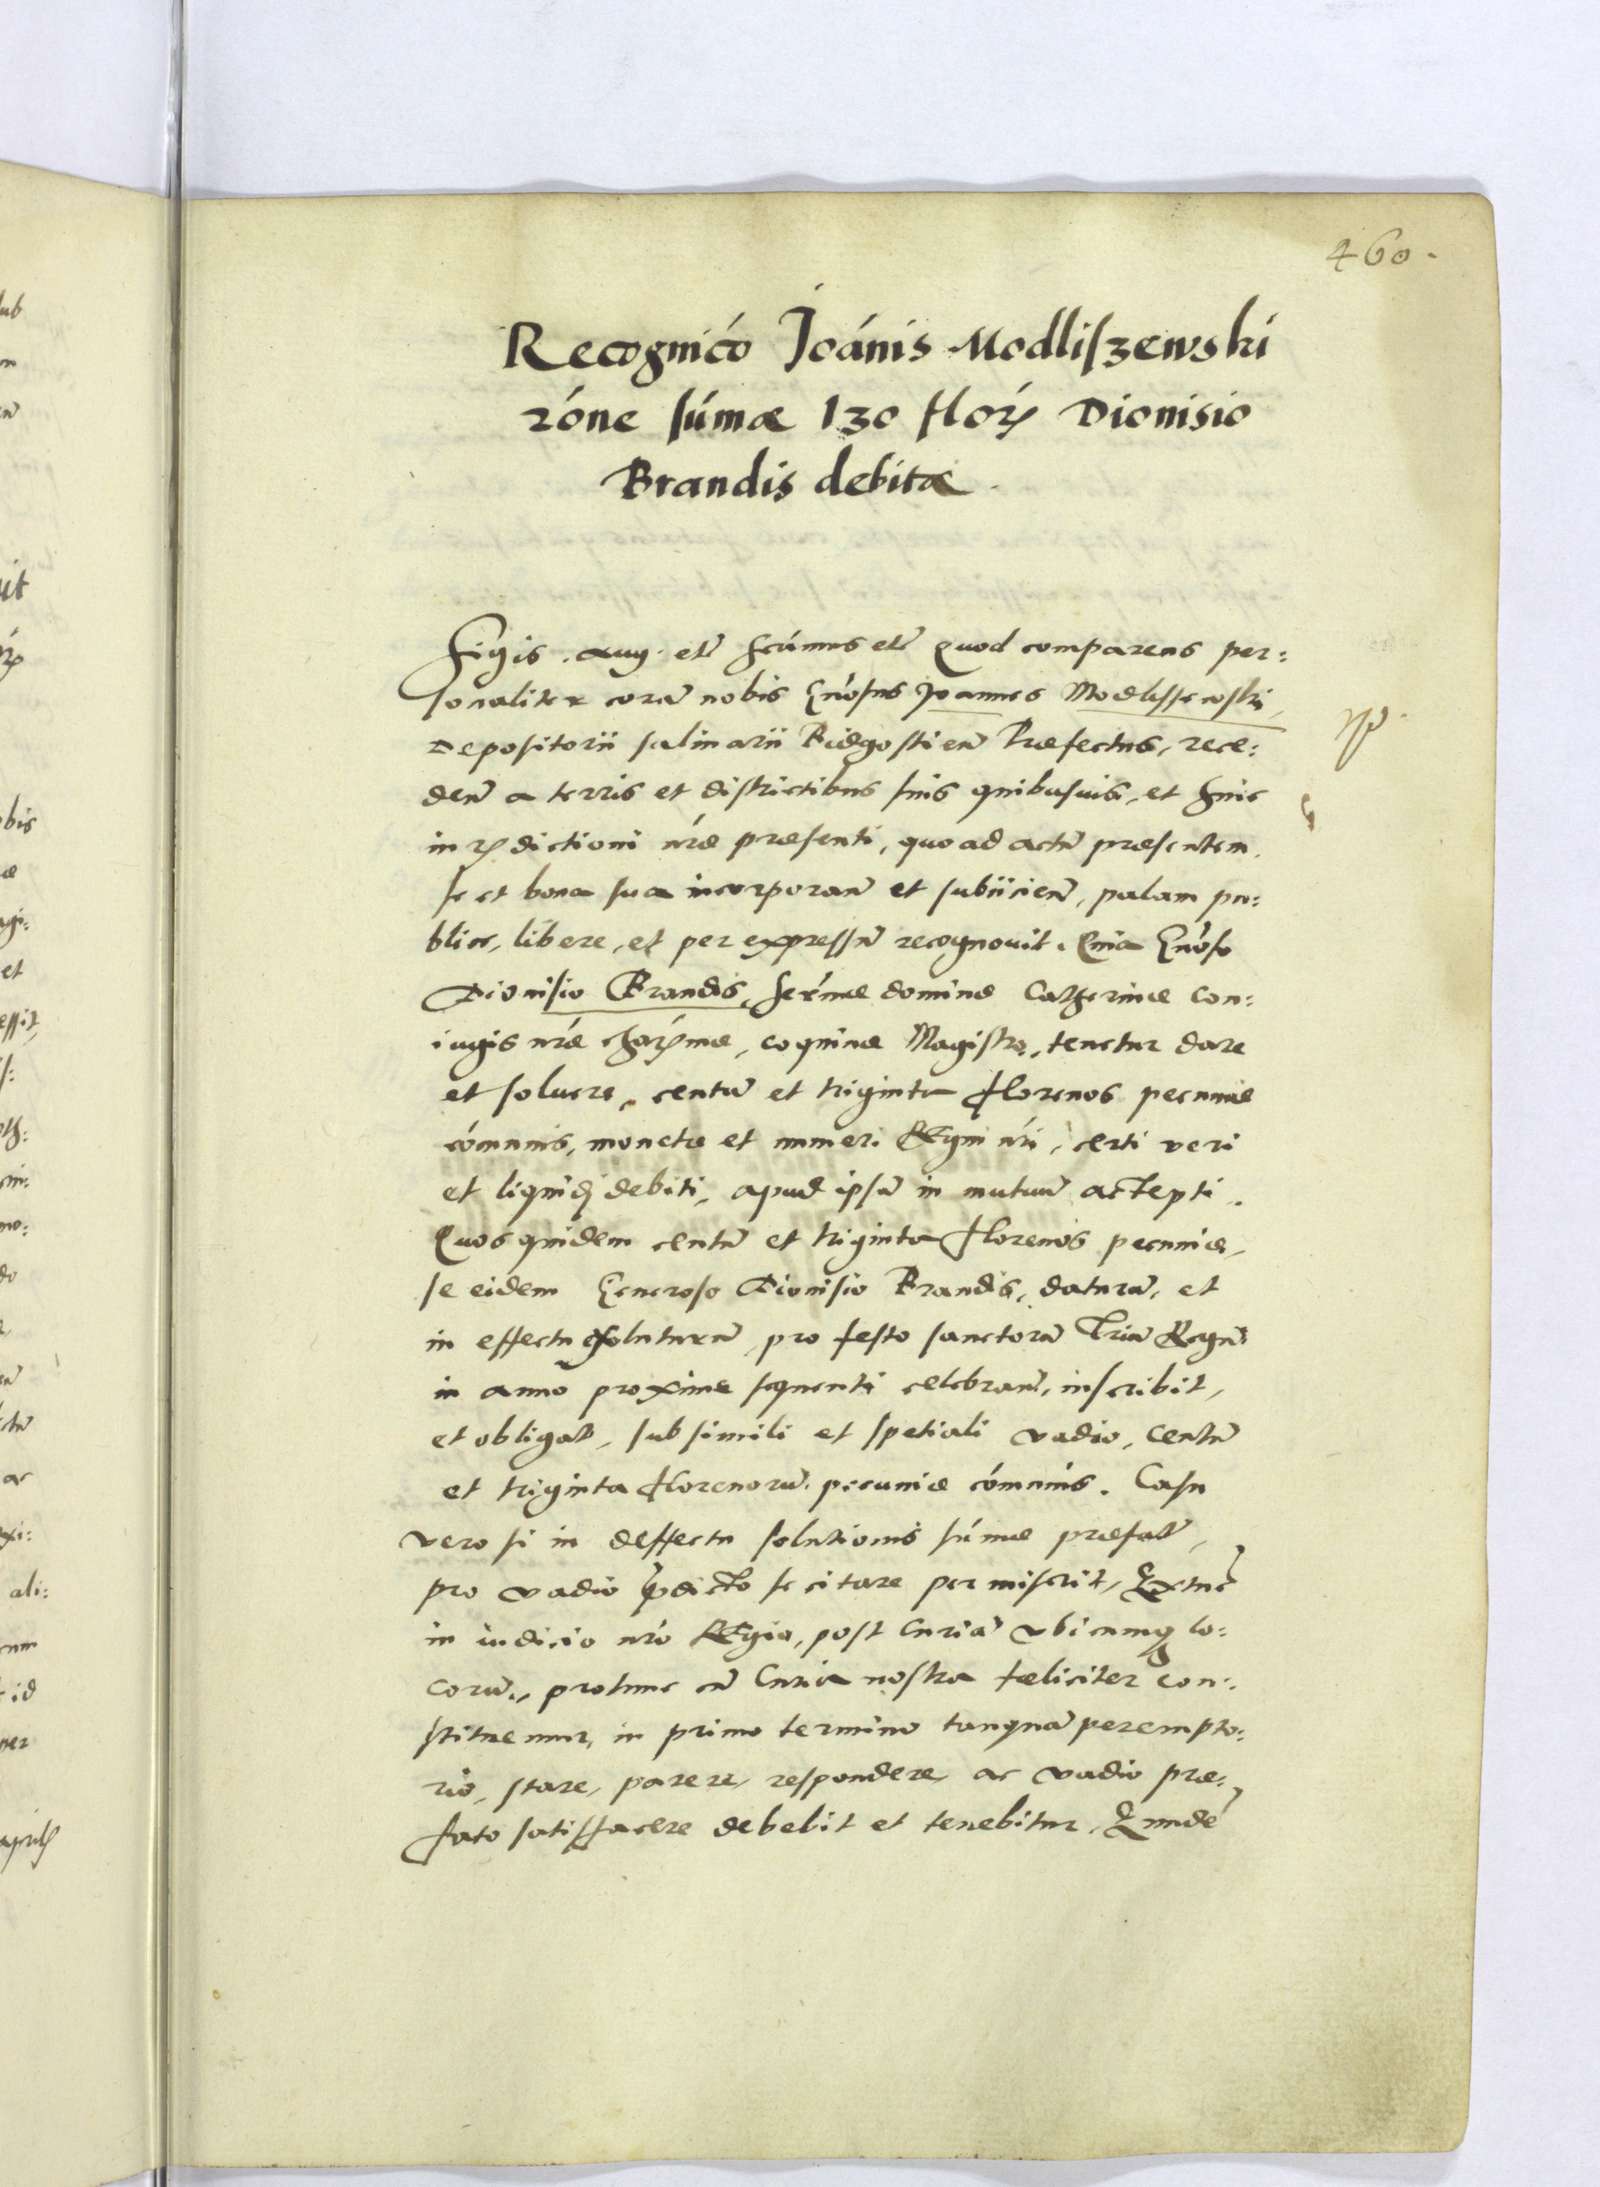 460.
Recognico Joánis Modliszewski
róne súmæ 130 flor Dionisio
Brandis debitæ.
Sigis. aug. etc̃ scimus etc̃ Quod comparens per:
sonaliter corã nobis Gñosus Joannes Modlissewski,
Depositorii salinarii Bidgostień Præfectus, rece:
deñ a terris et districtibus suis quibusuis, et huic
iurisdictioni nr̃æ præsenti, quo ad actũ præsentem,
se et bona sua incorporañ et subiicień, palam pu:
blice, libere, et per expressũ recognouit. Quia Gñoso
Dionisio Brandis, Serꝰmæ dominæ Catherinæ con:
iugis nr̃æ charꝰmæ, coquinæ Magistro, tenetur dare
et soluere, centũ et triginta florenos pecuniæ
cómunis, monetæ et numeri Regni nr̃i, certi veri
et liquidi debiti, apud ipsũ in mutuũ accepti.
Quos quidem centũ et triginta Florenos pecuniæ,
se eidem Generoso Dionisio Brandis, daturũ, et
in effectu exsoluturũ, pro festo sanctorũ Triũ Regũ
in anno proxime sequenti celebrañ, inscribit,
et obligat, sub simili et spetiali vadio, Centũ
et triginta florenorũ pecuniæ cómunis. Casu
vero si in deffectu solutionis súmæ præfat̃,
pro vadio p̃dicto se citare permiserit, Extũc
in iudicio nr̃o Regio, post Curiã vbicunq lo:
corũ, protunc cũ Curia nostra fæliciter con:
stituemur, in primo termino tanquã perempto:
rio, stare, parere, respondere, ac vadio præ:
fato satisfacere debebit et tenebitur. Eundẽ